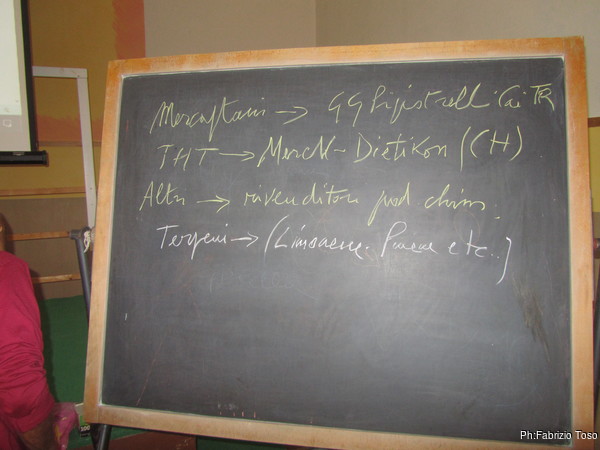 Mercaptani → GG Pipistrelli
THT → Merck - Dietikon (CH)
Altri → rivenditori prod chim.
Terpeni → (Limonene. Pinene etc..)
Ph:Fabrizio Toso